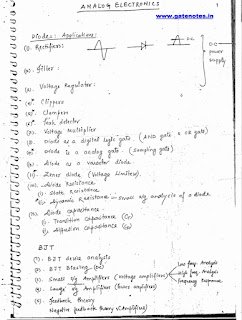 ANALOG ELECTRONICS
1
www.gatenotes.in
Diodes: Applications:
(1). Rectifiers:
DC
DC power supply
Filter:
Voltage Regulator:
Clippers
Clampers
Peak detector
Voltage multiplier
Diode as a digital logic gate (AND gate & OR gate)
Diode as a analog gate (Sampling gate)
Diode as a varactor diode
Zener diode (Voltage Limiter)
Diode Resistance
i) Static Resistance
ii) Dynamic Resistance – Small sig analysis of a diode
Diode capacitance
i) Transition capacitance (CT)
ii) Diffusion capacitance (CD)
BJT
(1). BJT device analysis
(2). BJT Biasing (DC)
(3). Small sig Amplifiers (voltage amplifiers)
Low freq. Analysis
High freq. Analysis
Frequency Response
(4). Large sig Amplifiers (Power amplifiers)
(5). Feedback theory
Negative feedback theory (Amplifiers)